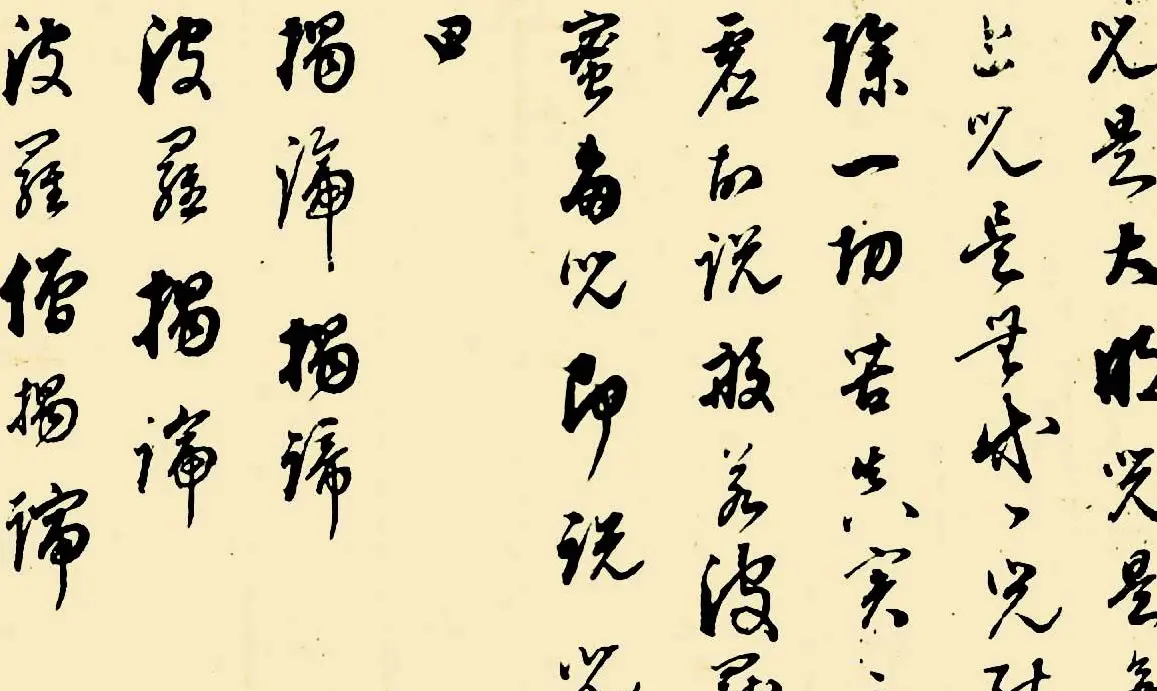 咒是大明咒是
上咒是無等等咒
除一切苦真實
虛故說般若波羅
蜜多咒即說咒
曰
揭諦揭諦
波羅揭諦
波羅僧揭諦